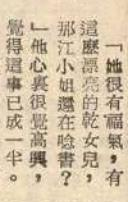 「她很有福氣，有
這麼漂亮的乾女兒，
那江小姐還在唸書？
」他心裏很覺高興，
覺得這事已成一半。